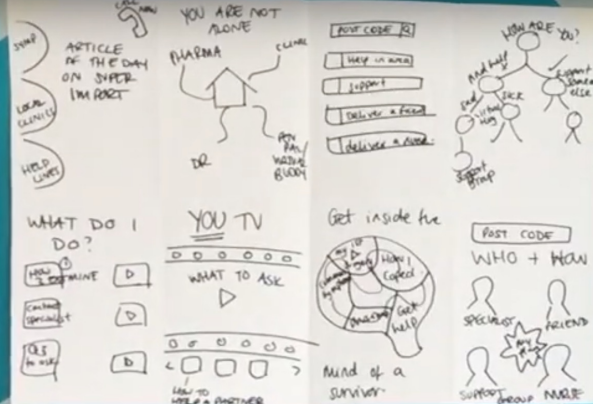 CALL NOW
SYMP
LOCAL
CLINICS
HELP
LINES
ARTICLE
OF THE DAY
ON SUPER
IMPORT
YOU ARE NOT
ALONE
PHARMA
CLINIC
DR
PEN
PAL
BUDDY
POST CODE
Help in area
Support
Deliver a
deliver a
HOW ARE YOU?
need help
Support
someone
else
sad
sick
virtual
hug
Support
group
WHAT DO I
DO?
HOW
I EXAMINE
Contact
specialist
QES
to ask
YOU TV
WHAT TO ASK
HOW TO
HELP A PARTNER
Get inside the
How I
Coped
Get
help
mind of a
survivor.
POST CODE
WHO + HOW
SPECIALIST
FRIEND
MY
SUPPORT
GROUP
NURSE